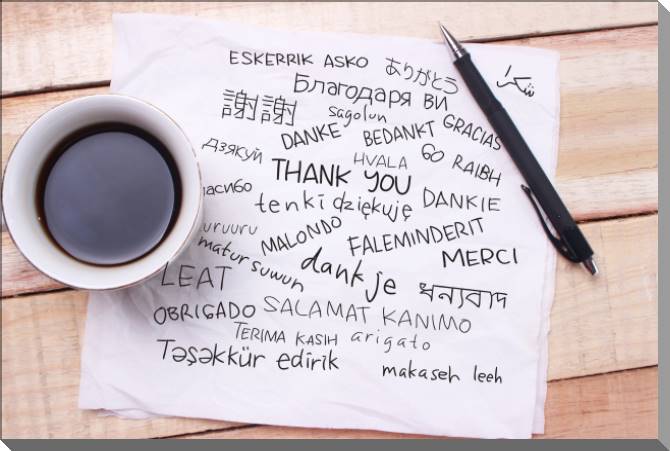 ESKERRIK ASKO ありがとう شكرا
Благодаря ВИ
謝謝 sagolun GRACIAS
DANKE BEDANKT
дзякуй HVALA GO RAIBH
THANK YOU
пасибо tenki dziękuję DANKIE
uruuru MALONDO FALEMINDERIT
matur suwun dank je MERCI
LEAT ধন্যবাদ
OBRIGADO SALAMAT KANIMO
TERIMA KASIH arigato
Təşəkkür edirik makaseh leeh